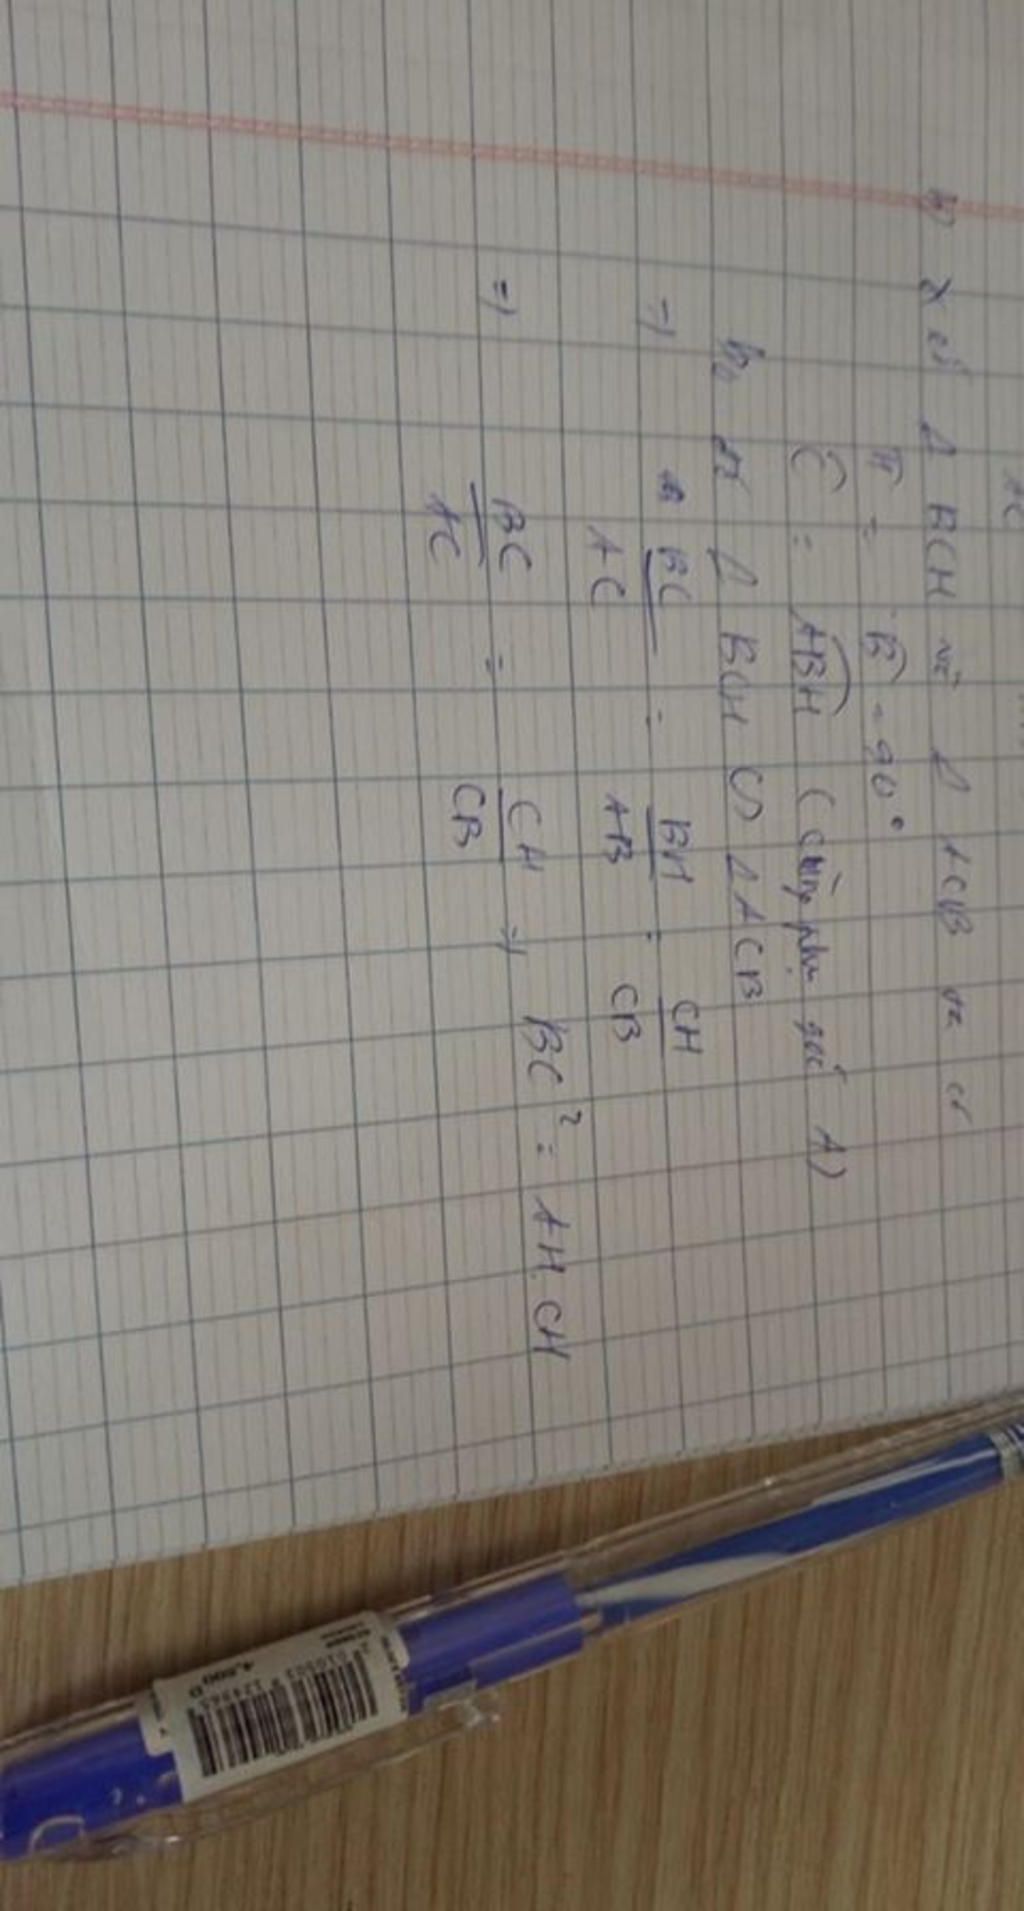 b) Xét Δ BCH và Δ ACB ta có
H = B = 90°
C = ABH (Cùng phụ góc A)
Do đó Δ BCH ∽ Δ ACB
=> BC/AC = BH/AB = CH/CB
=> BC/AC = CH/CB => BC² = AH. CH
AC
4,500 Đ